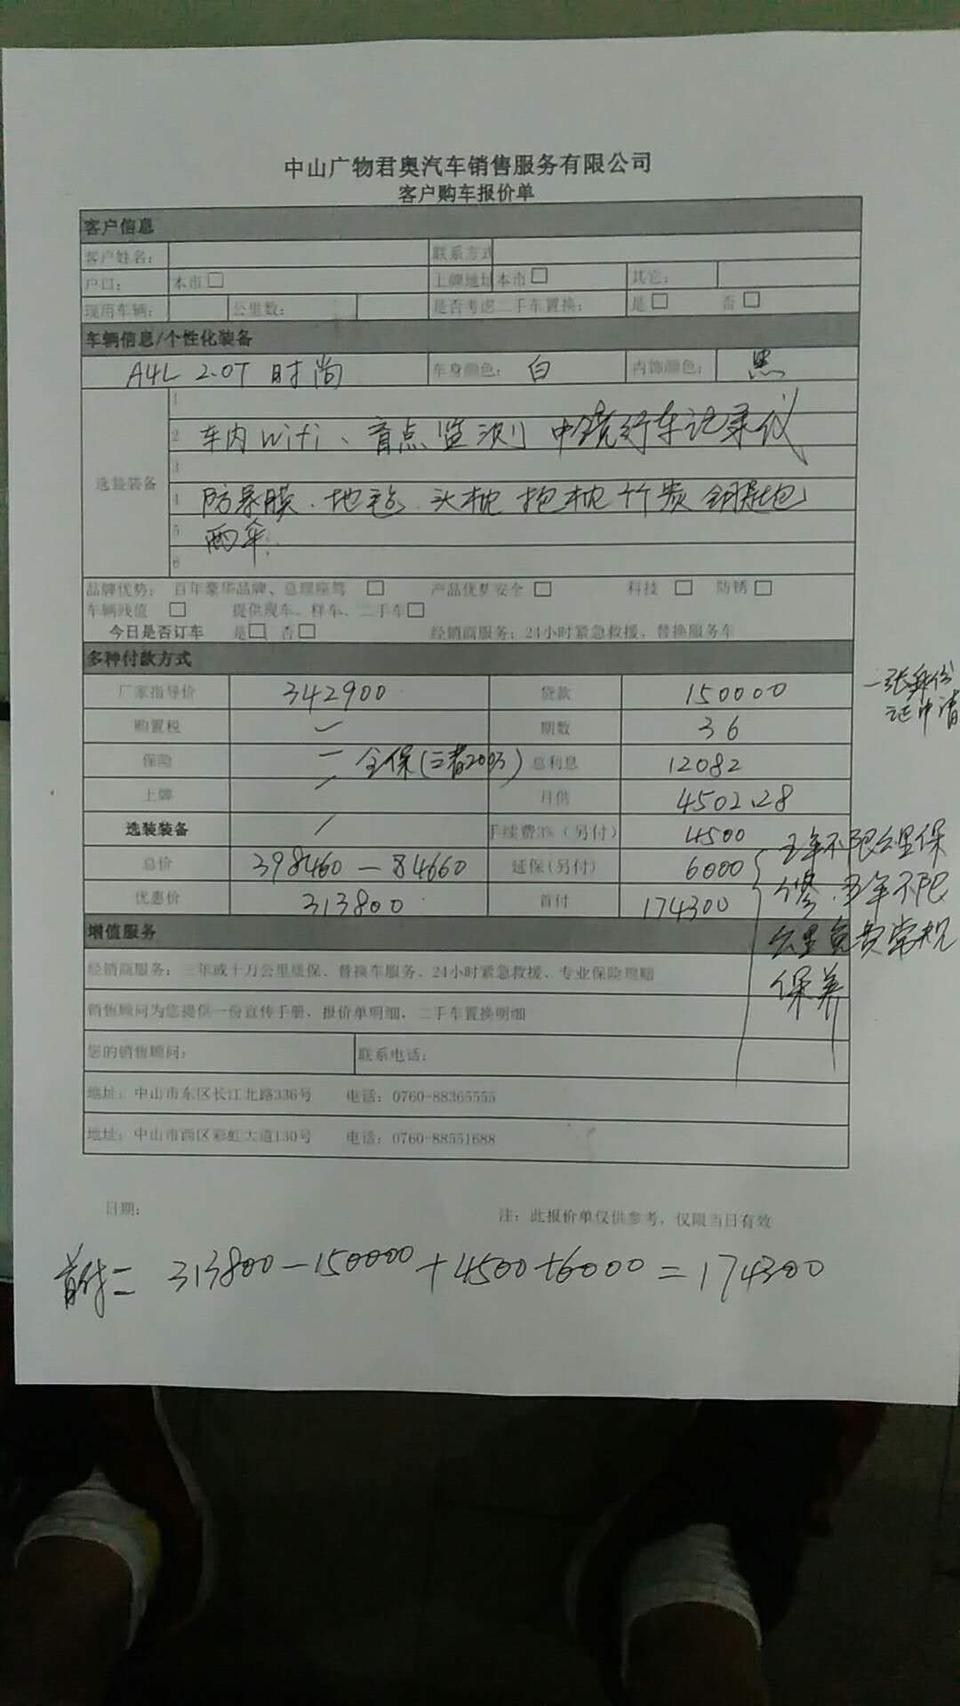 中山广物君奥汽车销售服务有限公司
客户购车报价单
客户信息
客户姓名: 联系方式
户口: 本市□ 上牌地址 本市□ 其它:
现用车辆: 公里数: 是否考虑二手车置换: 是□ 否□
车辆信息/个性化装备
A4L 2.0T 时尚 车身颜色: 白 内饰颜色: 黑
1
2 车内wifi、盲点监测 中镜行车记录仪
3
选装装备
4 防暴膜.地毯.头枕 抱枕 竹炭 钥匙包
5 雨伞.
6
品牌优势: 百年豪华品牌、总理座驾 □ 产品优势 安全 □ 科技 □ 防锈 □
车辆残值 □ 提供现车、样车、二手车□
今日是否订车 是□ 否□ 经销商服务: 24小时紧急救援、替换服务车
多种付款方式
厂家指导价 342900 贷款 150000 一张身份
证申请
购置税 期数 36
保险 全保(三者200万) 总利息 12082
上牌 月供 4502.28
选装装备 手续费3%(另付) 4500
总价 398460-84660 延保(另付) 6000 五年不限公里保
修.五年不限
优惠价 313800 首付 174300
公里免费常规
保养
增值服务
经销商服务: 三年或十万公里质保、替换车服务、24小时紧急救援、专业保险理赔
销售顾问为您提供一份宣传手册、报价单明细、二手车置换明细
您的销售顾问: 联系电话:
地址: 中山市东区长江北路336号 电话: 0760-88365555
地址: 中山市西区彩虹大道130号 电话: 0760-88551688
日期: 注: 此报价单仅供参考, 仅限当日有效
首付= 313800-150000+4500+6000=174300